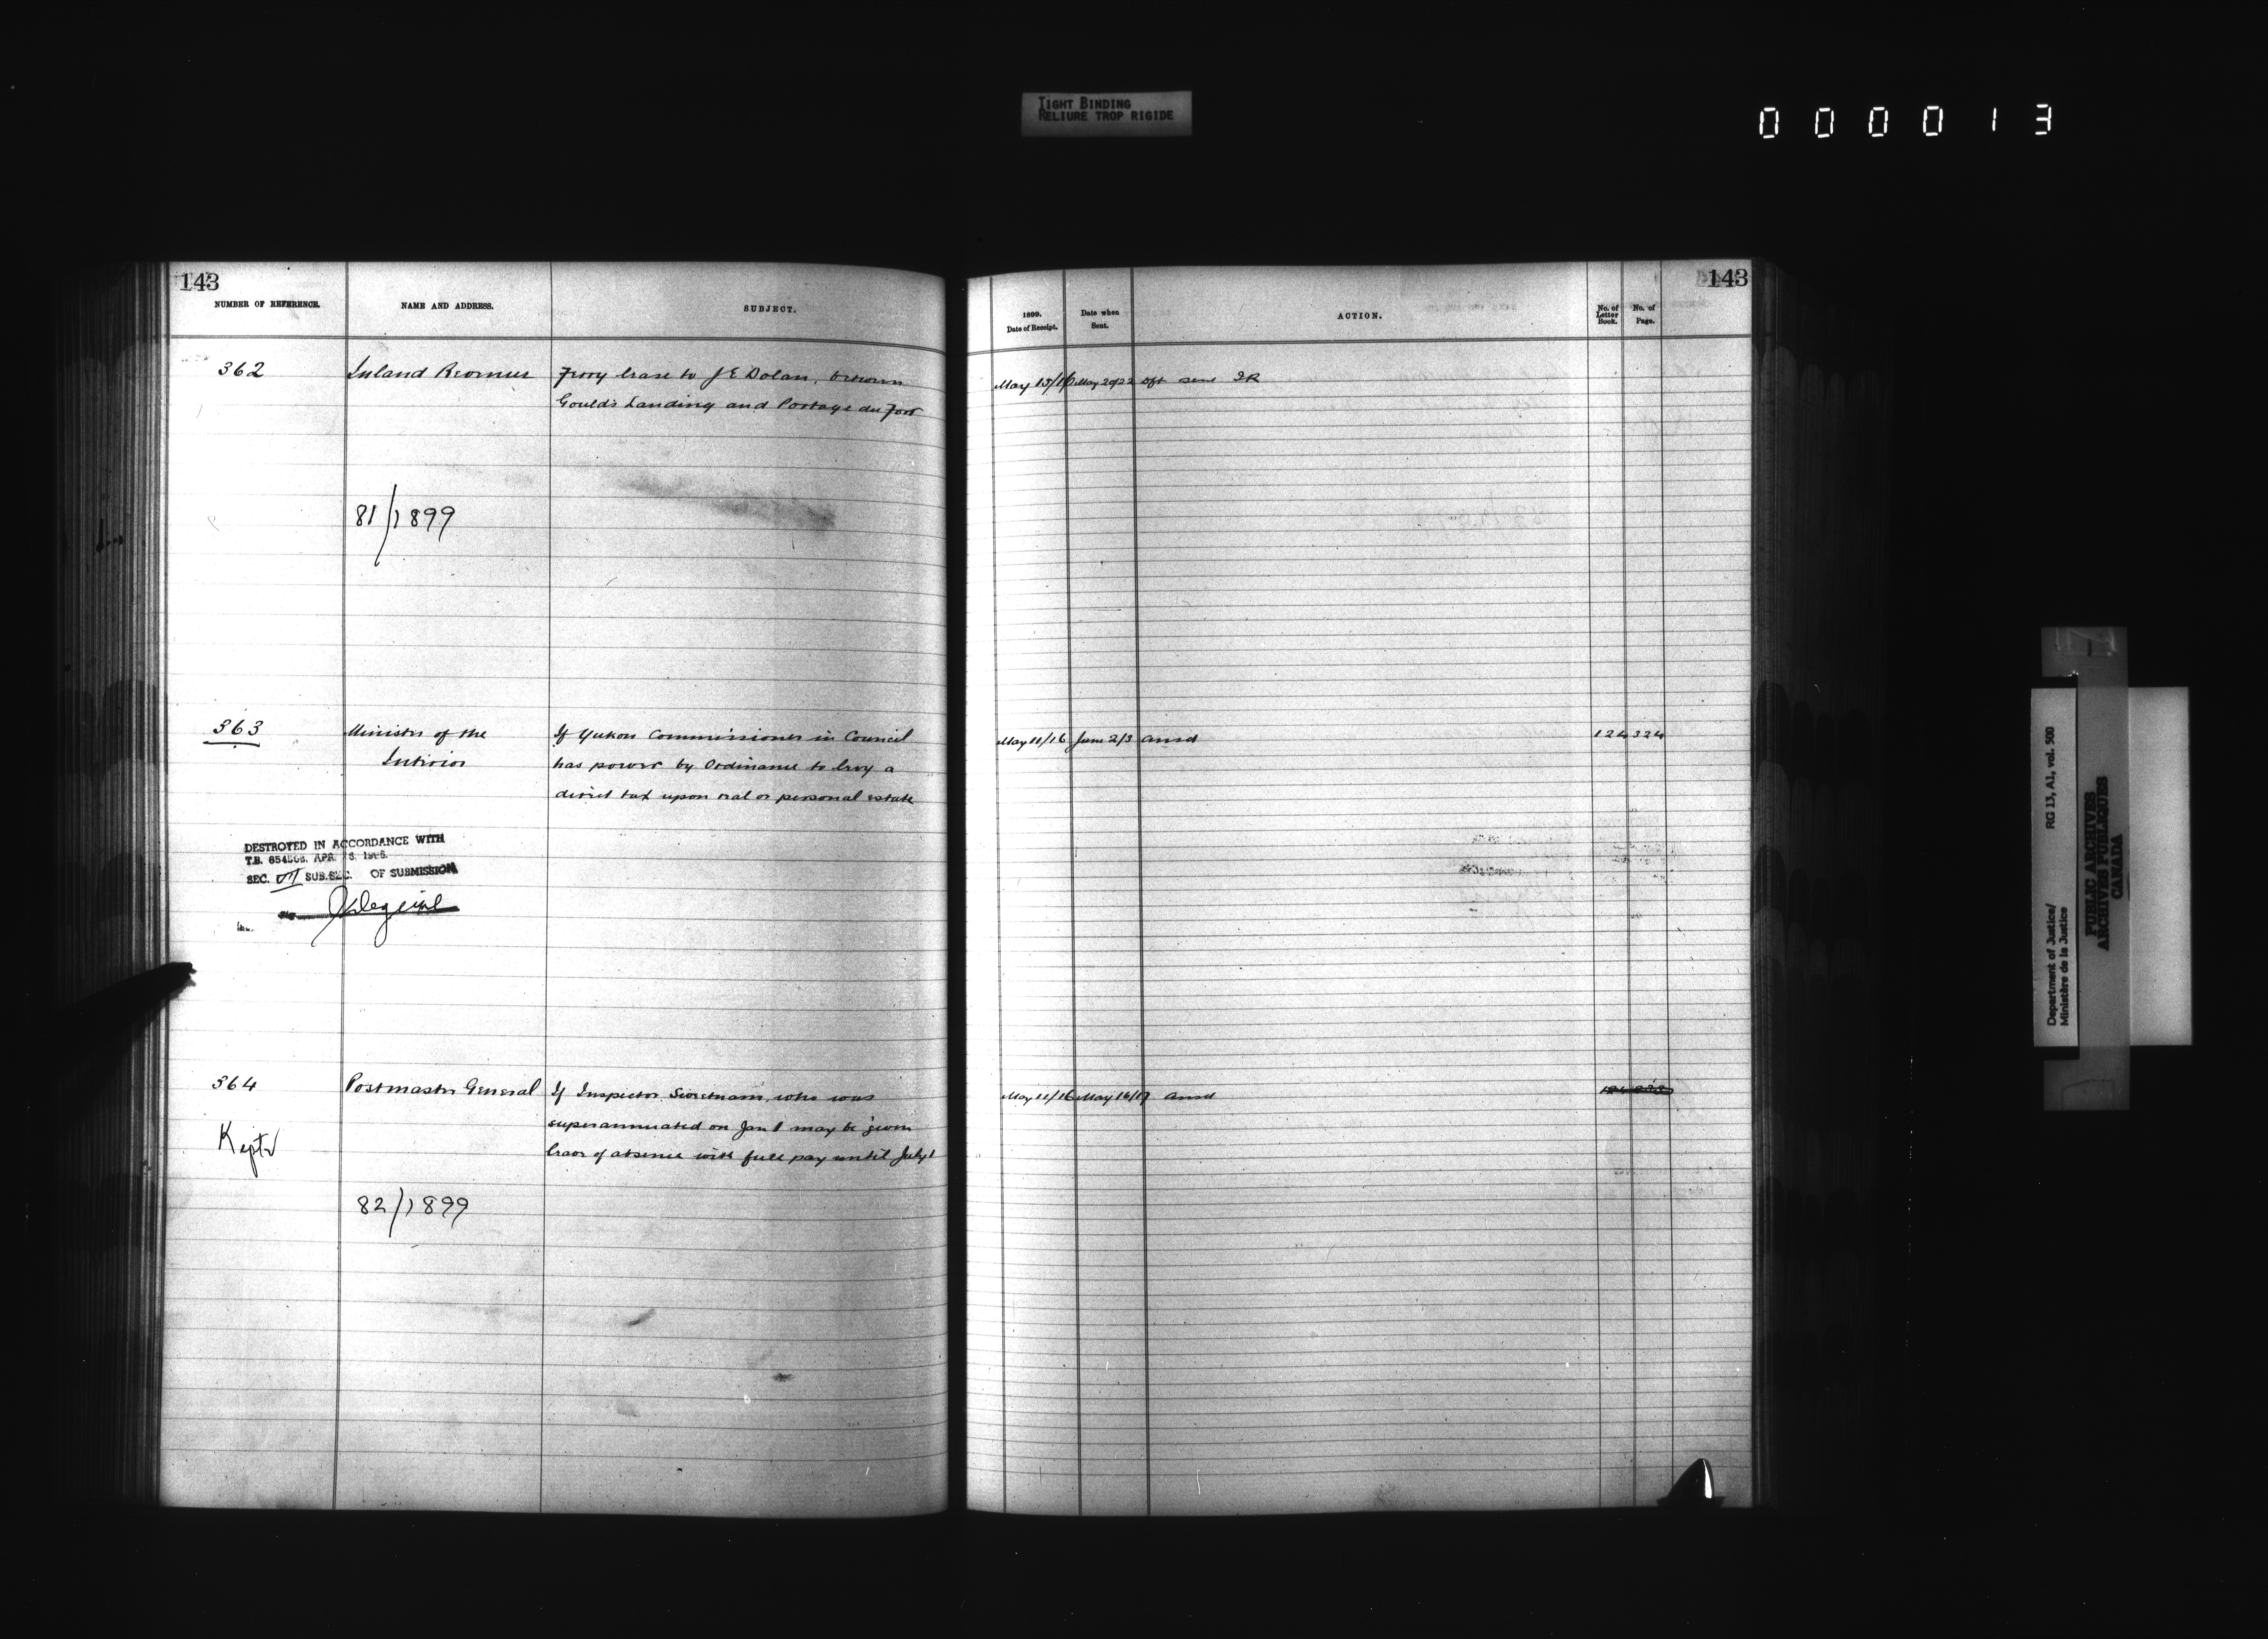 TIGHT BINDING
RELIURE TROP RIGIDE
000013
143
NUMBER OF REFERENCE.
NAME AND ADDRESS.
SUBJECT.
362
Inland Revenue
Ferry lease to J E Dolan, between
Gould's Landing and Portage du Fort
81/1899
363
Minister of the
Interior
If Yukon Commissioner in Council
has power by Ordinance to levy a
direct tax upon real or personal estate
DESTROYED IN ACCORDANCE WITH
T.B. APR.
SEC. VII SUB.SEC. OF SUBMISSION
364
Postmaster General
If Inspector Sweetnam, who was
superannuated on Jan 1 may be given
leave of absence with full pay until July 1
Kept
82/1899
143
1899.
Date of Receipt.
Date when
Sent.
ACTION.
No. of
Letter
Book.
No. of
Page.
May 15/16 May 20/22 Dft sent IR
May 11/16 June 2/3 ansd 124 324
May 11/16 May 16/17 ansd
Department of Justice/
Ministère de la Justice
RG 13, A1, vol. 500
PUBLIC ARCHIVES
ARCHIVES PUBLIQUES
CANADA